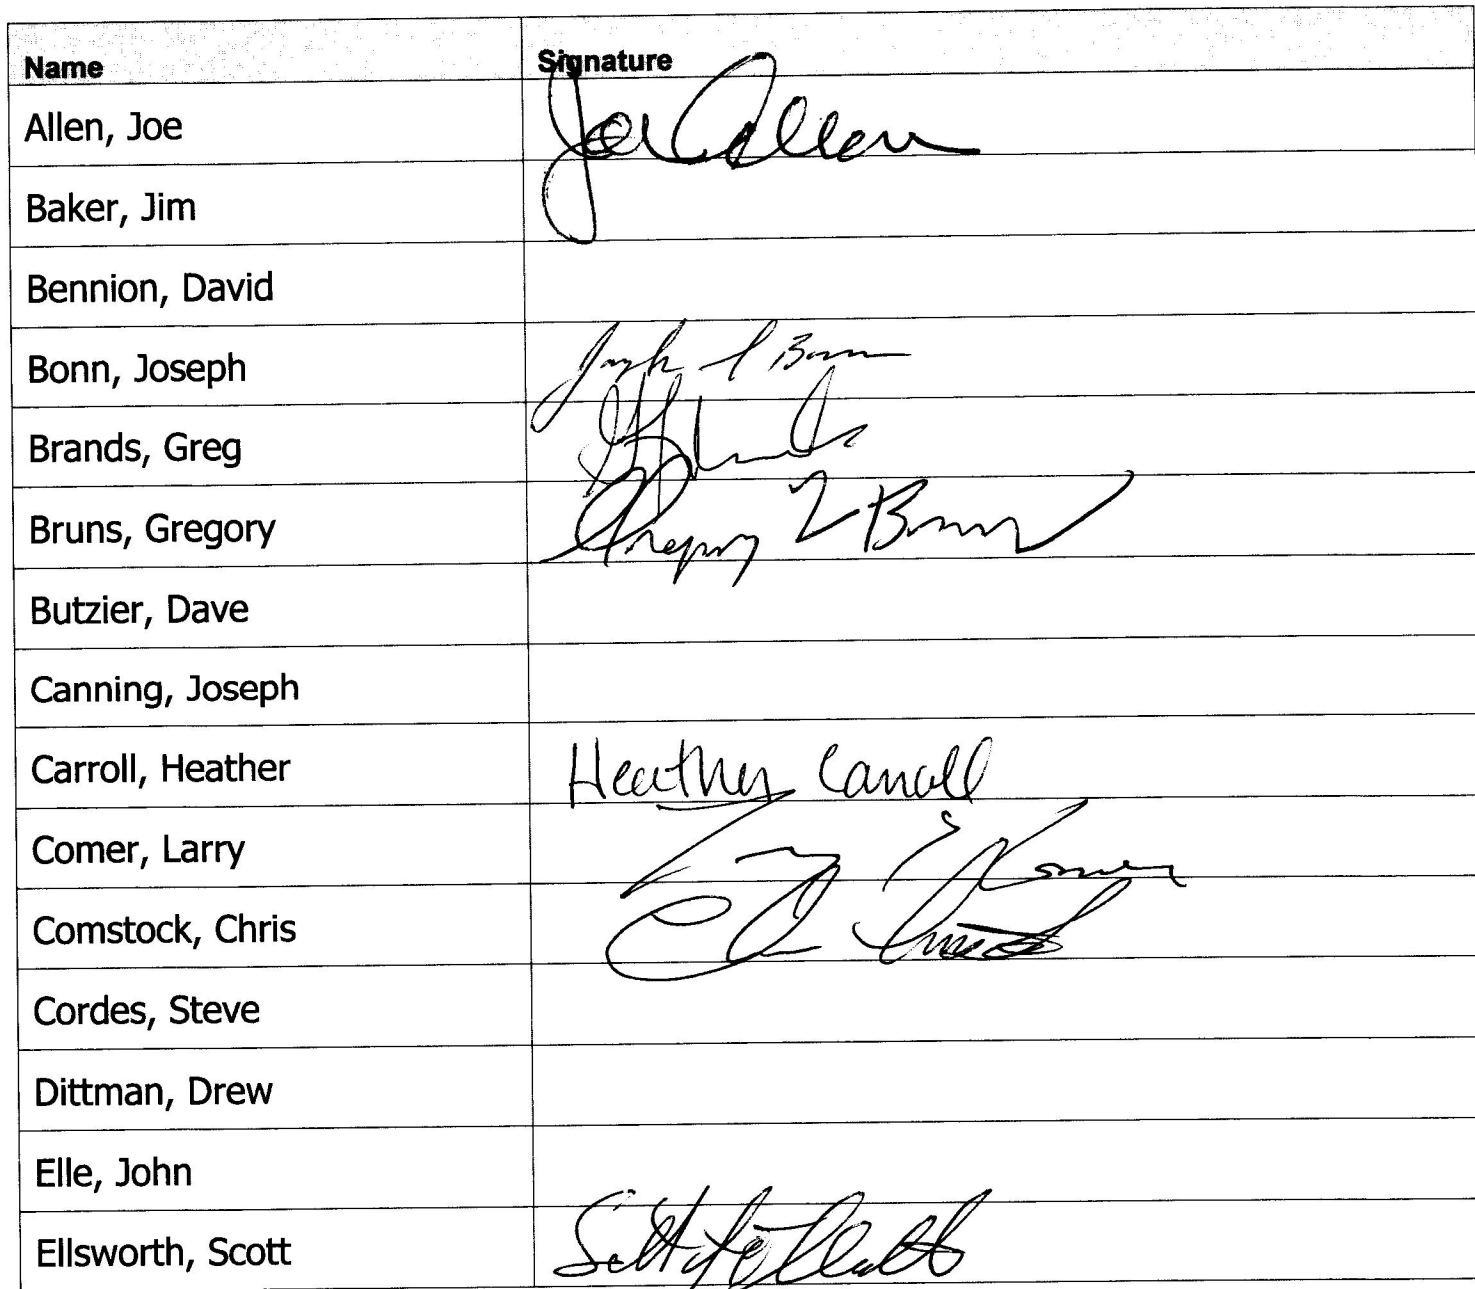 Name Signature
Allen, Joe Joe Allen
Baker, Jim
Bennion, David
Bonn, Joseph Joseph Bonn
Brands, Greg
Bruns, Gregory Gregory L Bruns
Butzier, Dave
Canning, Joseph
Carroll, Heather Heather Carroll
Comer, Larry Larry E Comer
Comstock, Chris
Cordes, Steve
Dittman, Drew
Elle, John
Ellsworth, Scott Scott